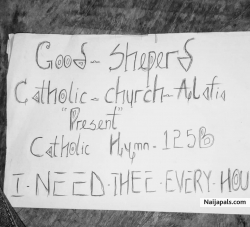 Good - Sheperd
Catholic - church - Alafia
"Present"
Catholic Hymn - 125B
I · NEED · THEE · EVERY · HOU
Naijapals.com